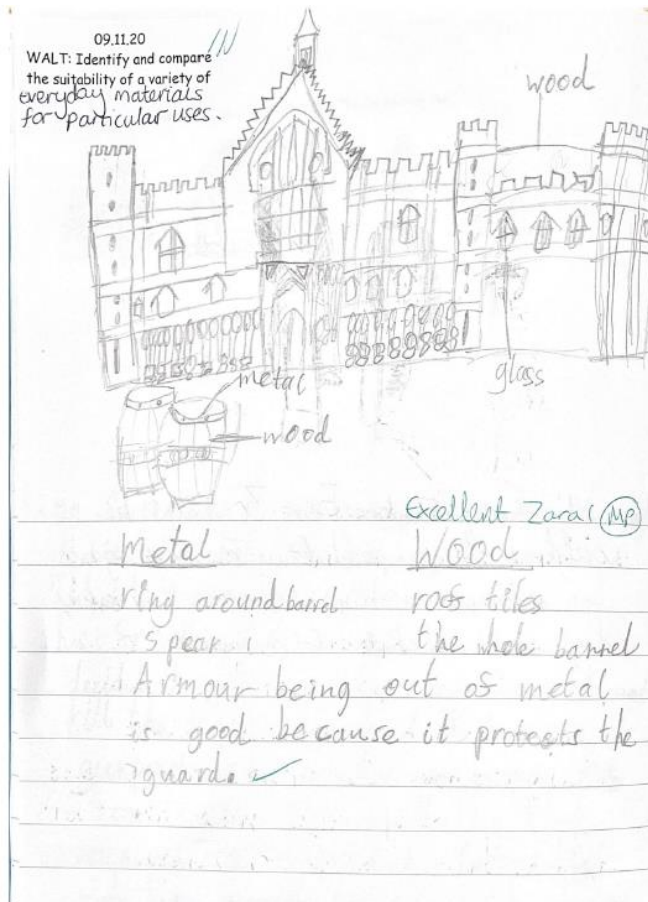 09.11.20
WALT: Identify and compare
the suitability of a variety of
everyday materials
for particular uses.
wood
glass
metal
wood
Excellent Zara! MP
Metal
WOOD
ring around barrel
roof tiles
spear
the whole barrel
Armour being out of metal
is good because it protects the
guard.